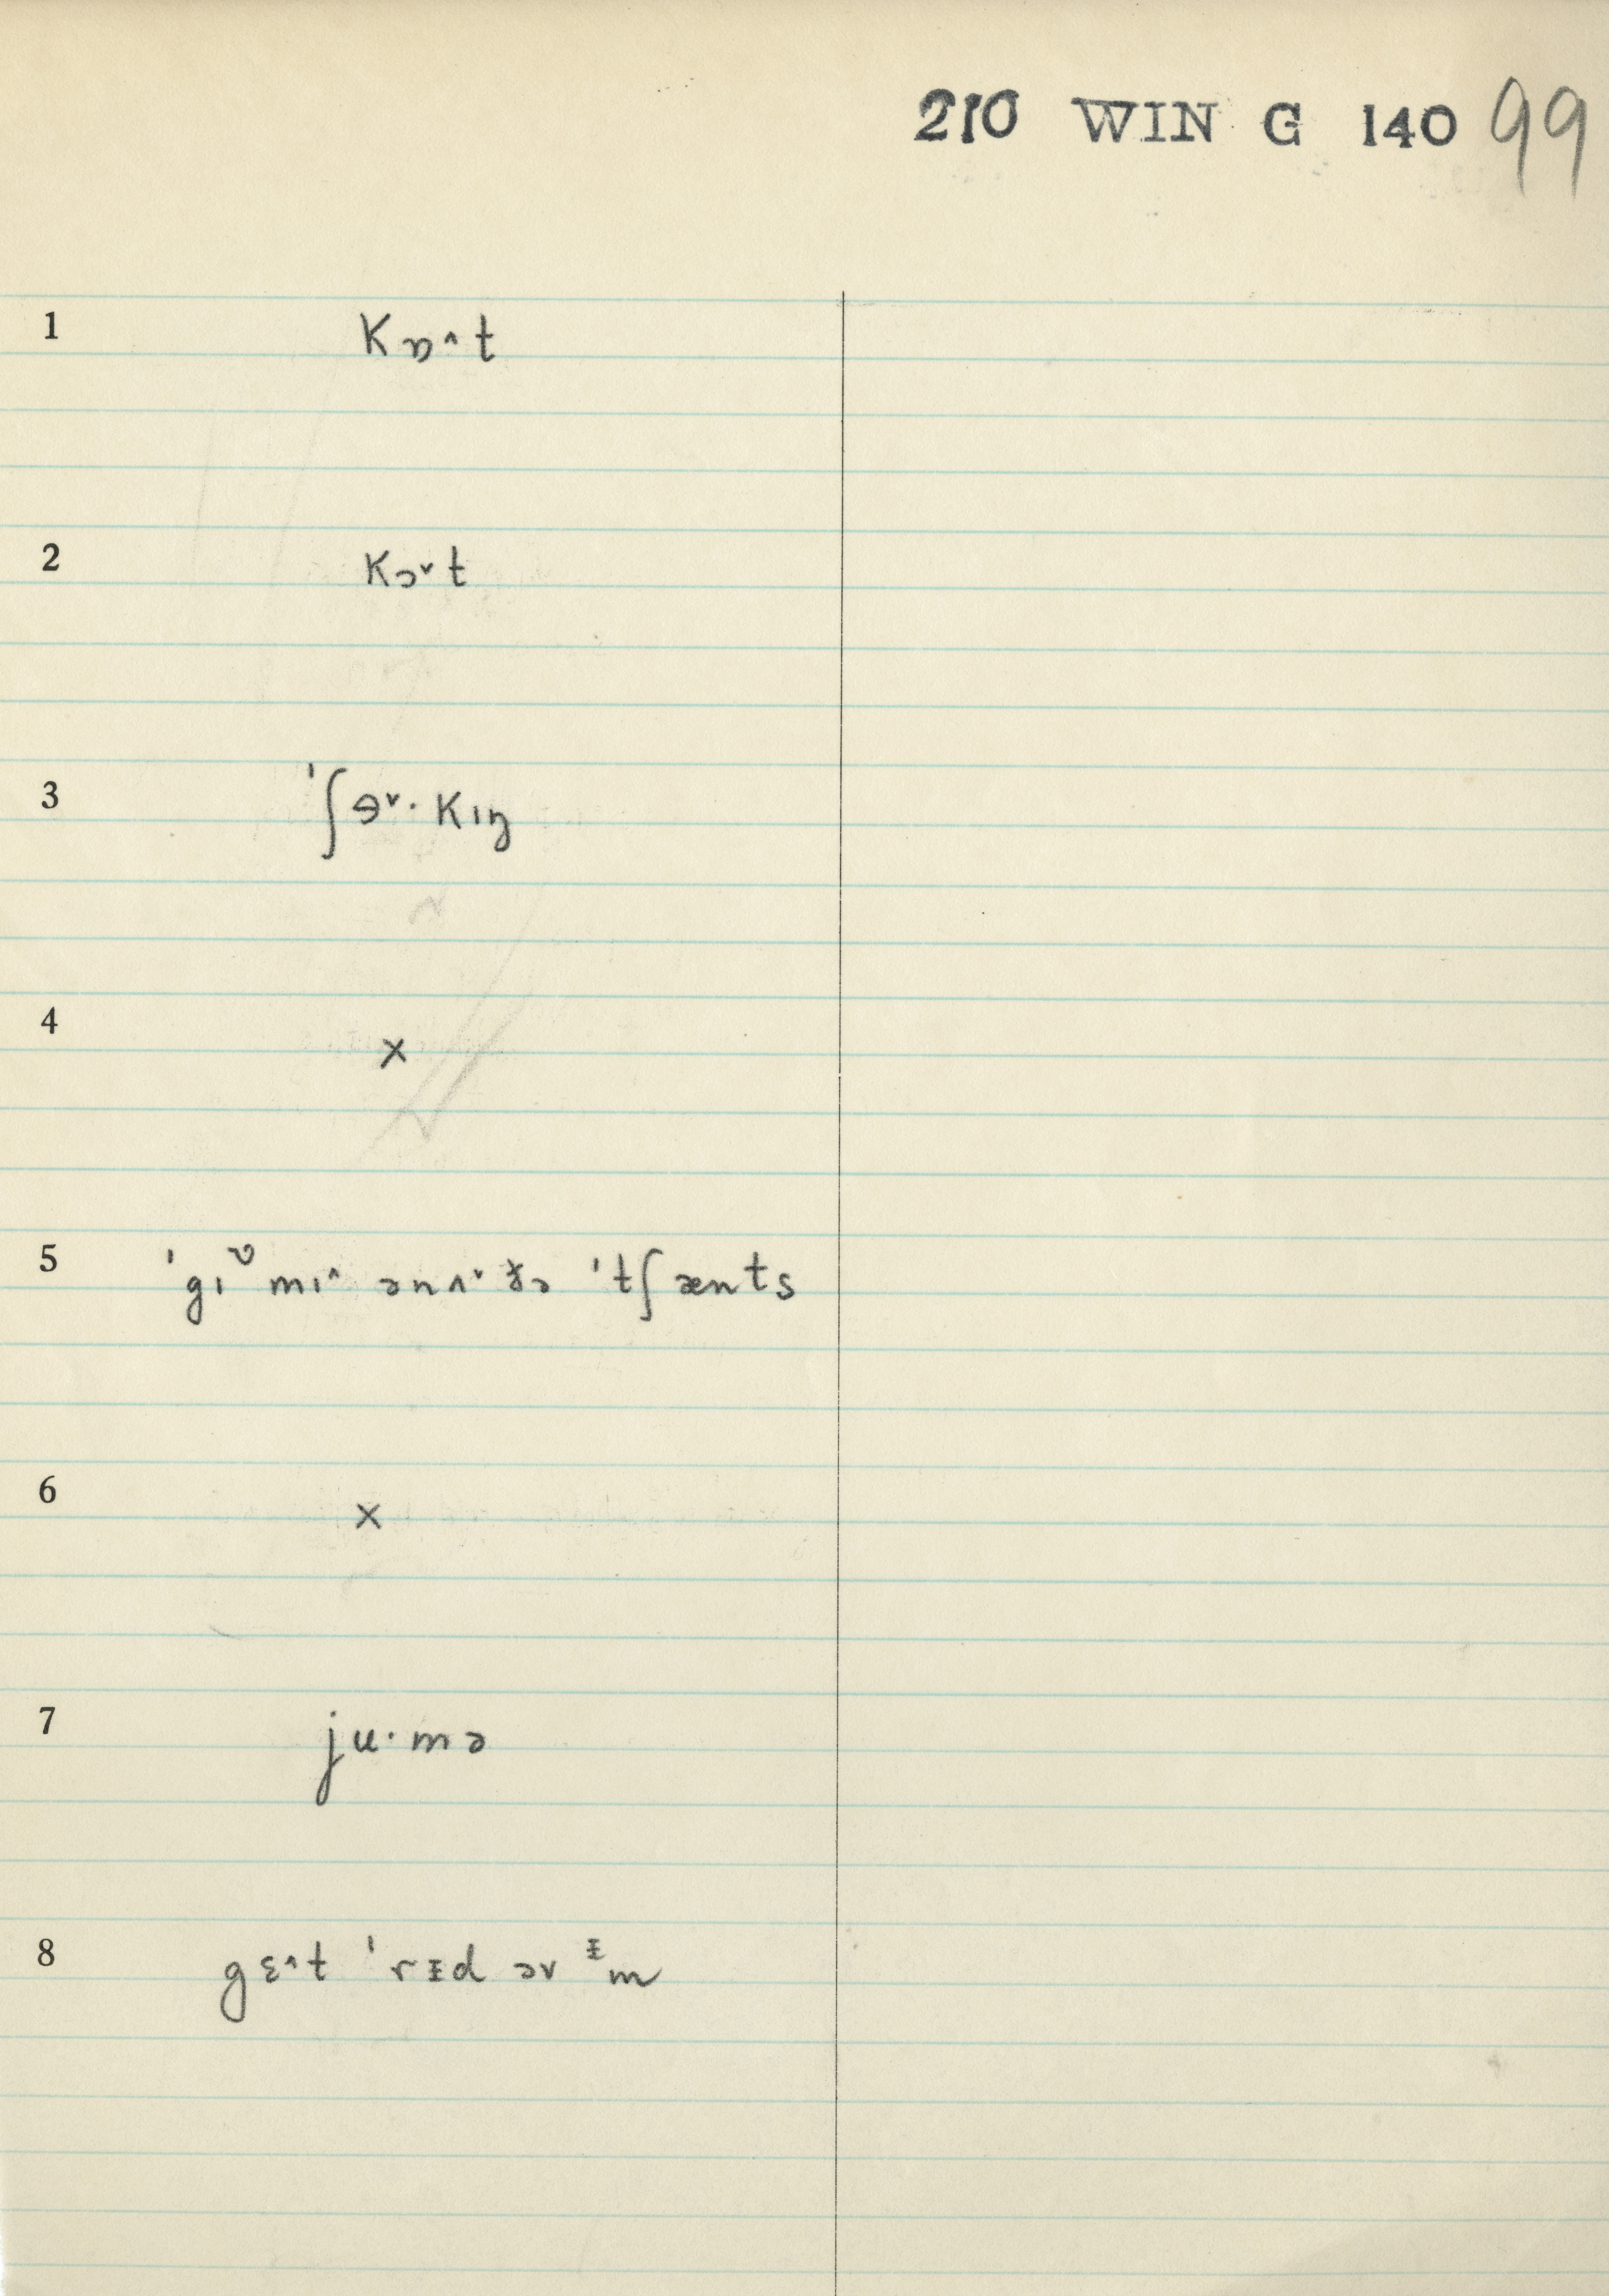 210 WIN G 140 99
1 kɒ˄t
2 kɔ˅t
3 ˈʃɘ˅·kɪŋ
4 x
5 ˈgɪᶹ mɪ˄ ənʌ˅ðə ˈtʃænts
6 x
7 ju·mə
8 gɛ˄t ˈrɪ̵d əv ᵻm